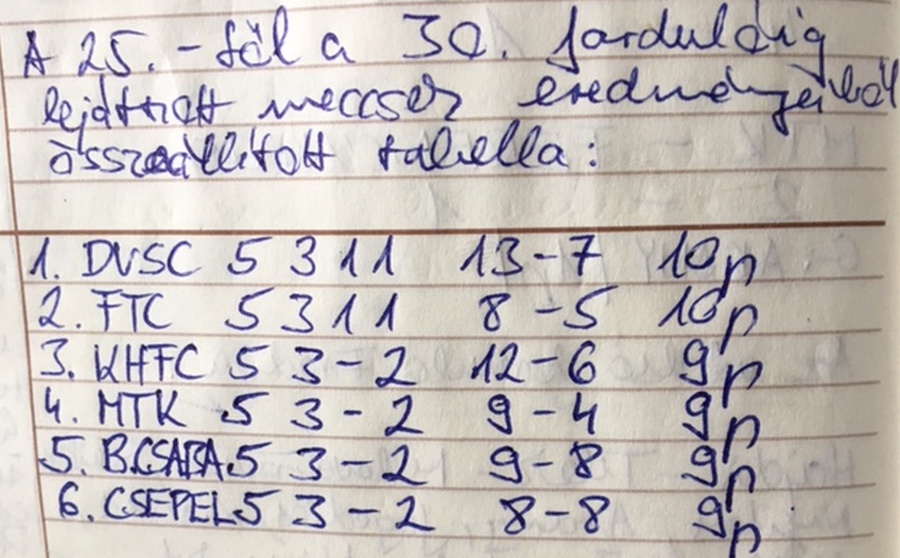 A 25. - től a 30. fordulóig
lejátszott meccsek eredményeiből
összeállított tabella:
1. DVSC 5 3 1 1 13-7 10p
2. FTC 5 3 1 1 8-5 10p
3. KHFC 5 3 - 2 12-6 9p
4. MTK 5 3 - 2 9-4 9p
5. B.CSABA 5 3 - 2 9-8 9p
6. CSEPEL 5 3 - 2 8-8 9p